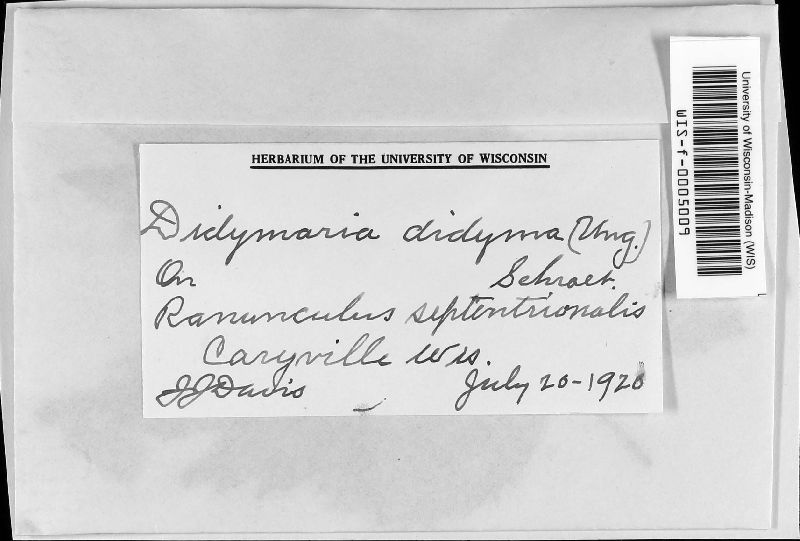 HERBARIUM OF THE UNIVERSITY OF WISCONSIN
Didymaria didyma (Ung.)
On Schroet.
Ranunculus septentrionalis
Caryville Wis.
JJDavis July 20-1920
University of Wisconsin-Madison (WIS)
WIS-f-0005009